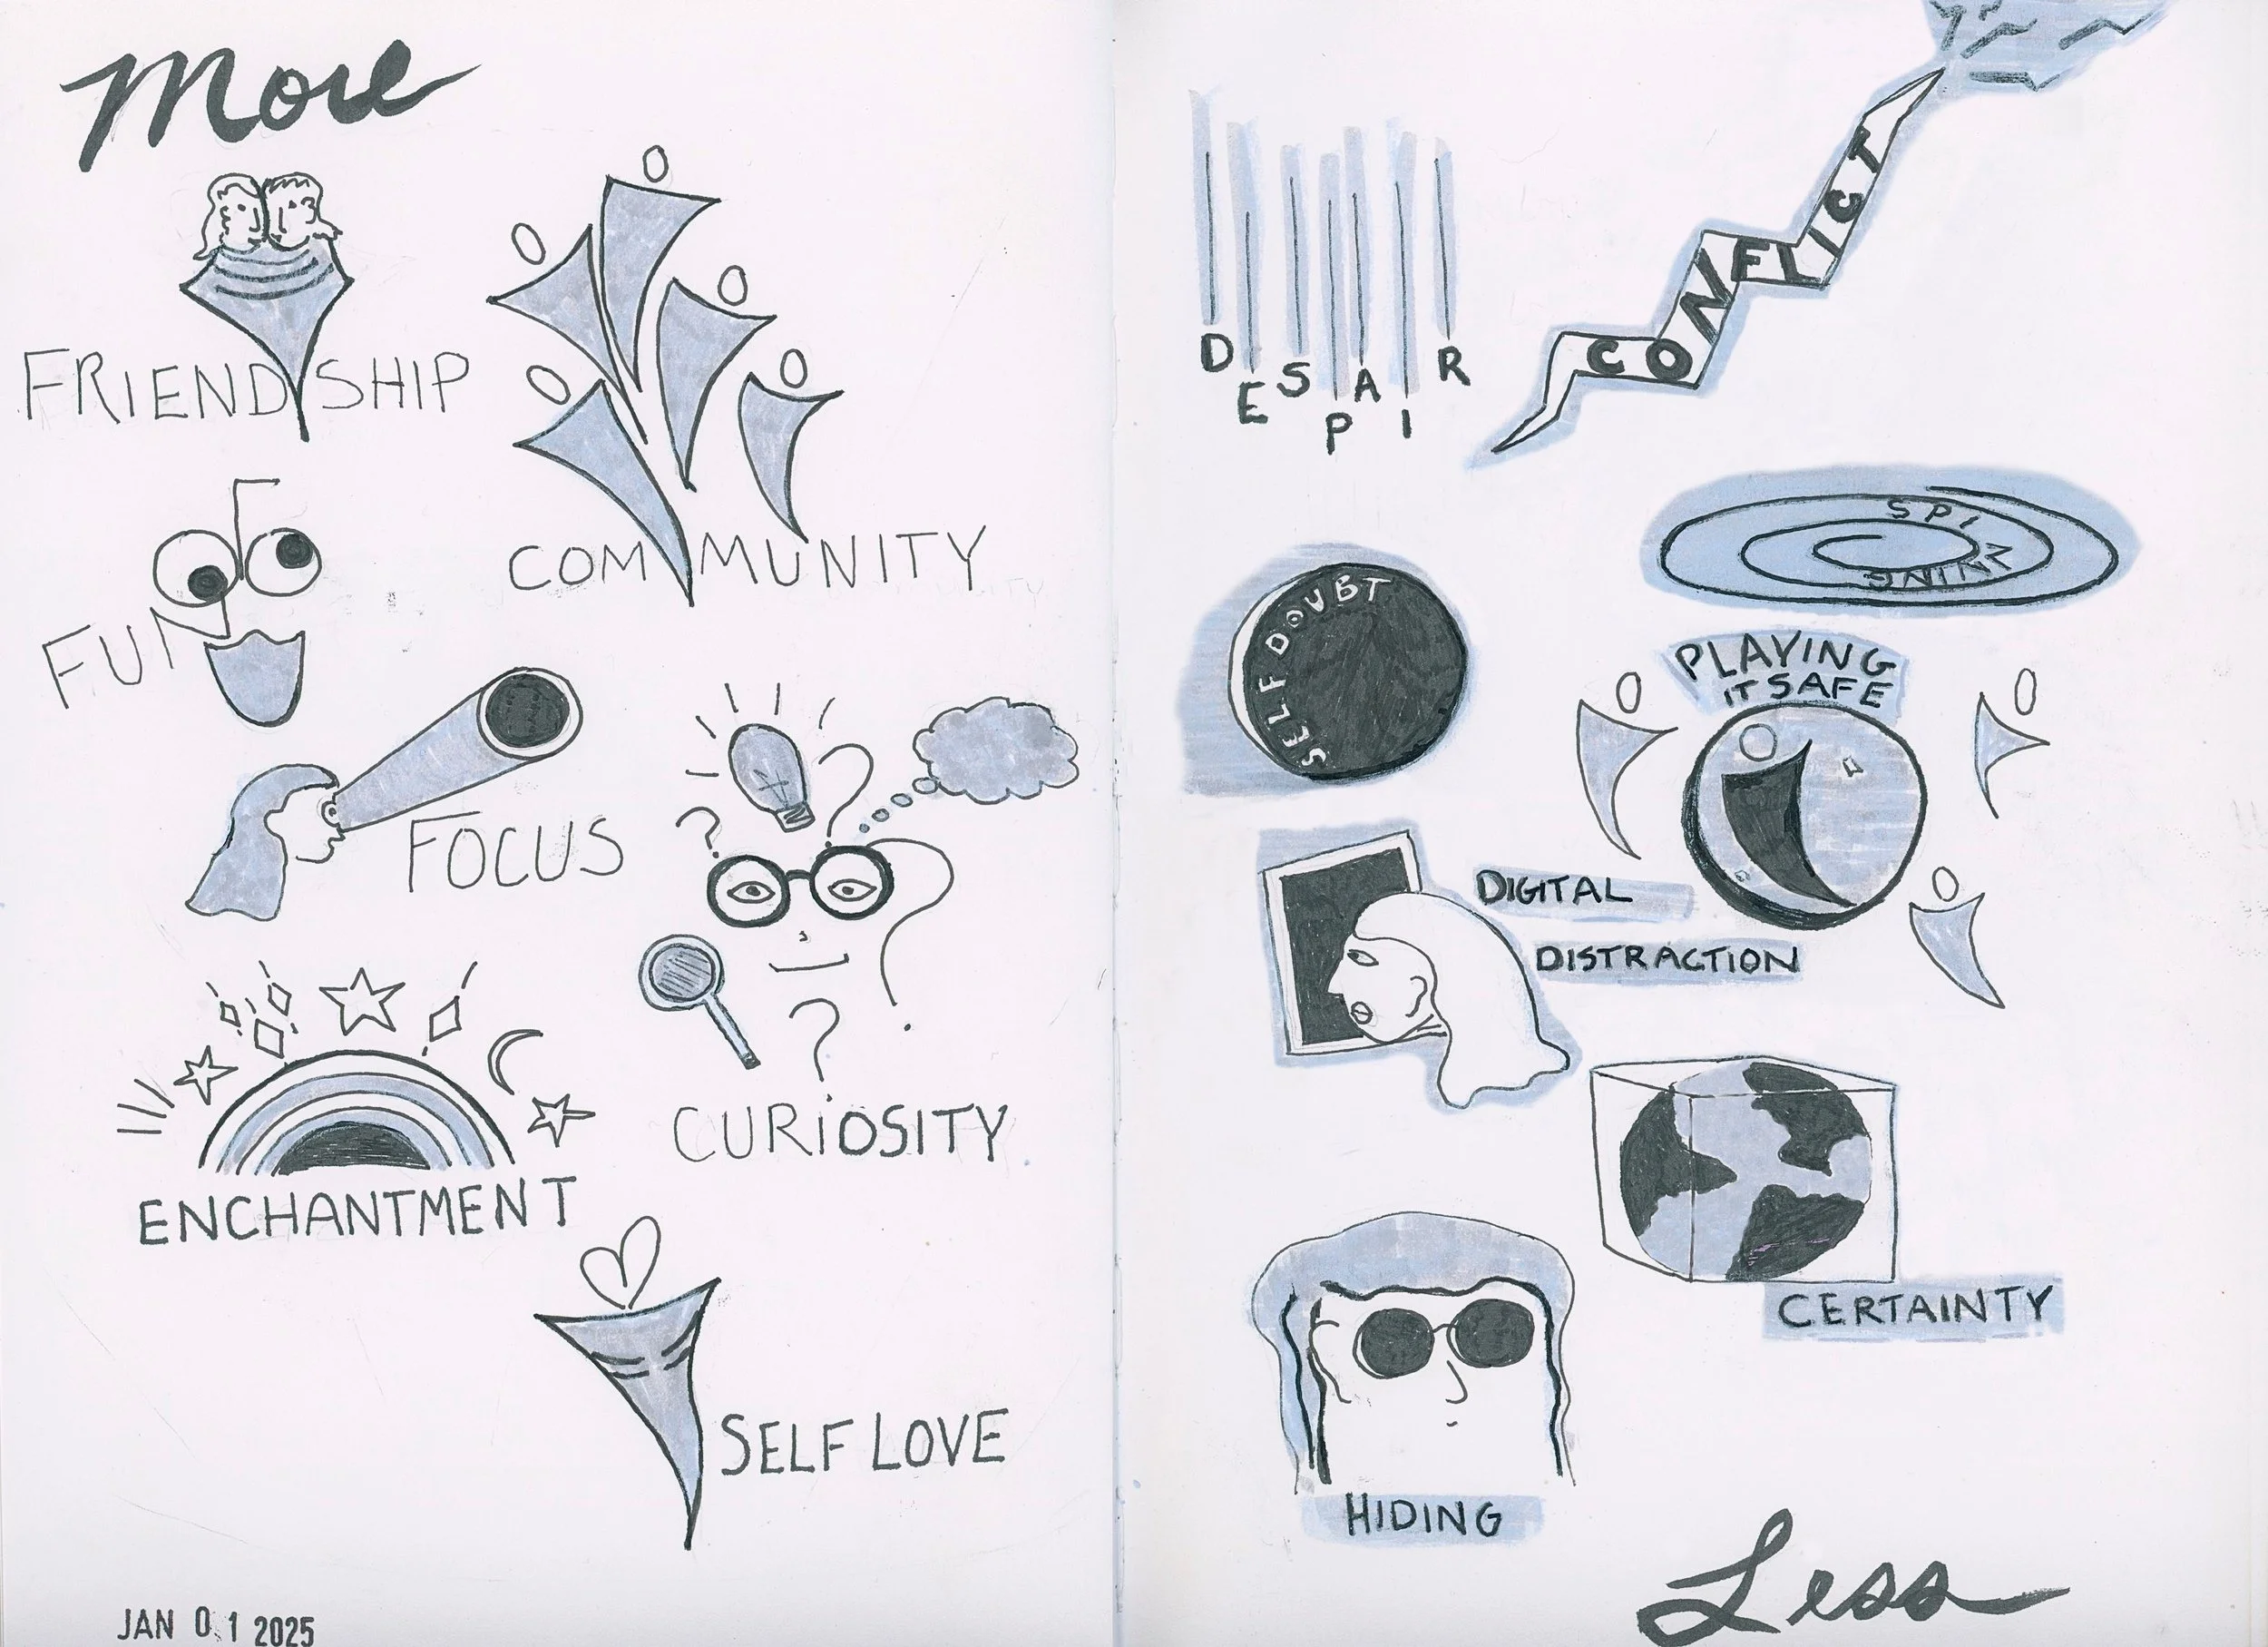 More
FRIENDSHIP
COMMUNITY
FUN
FOCUS
CURiOSITY
ENCHANTMENT
SELF LOVE
JAN 01 2025
DESPAIR
CONFLICT
SPINNING
SELF DOUBT
PLAYING
IT SAFE
DIGITAL
DISTRACTION
CERTAINTY
HIDING
Less